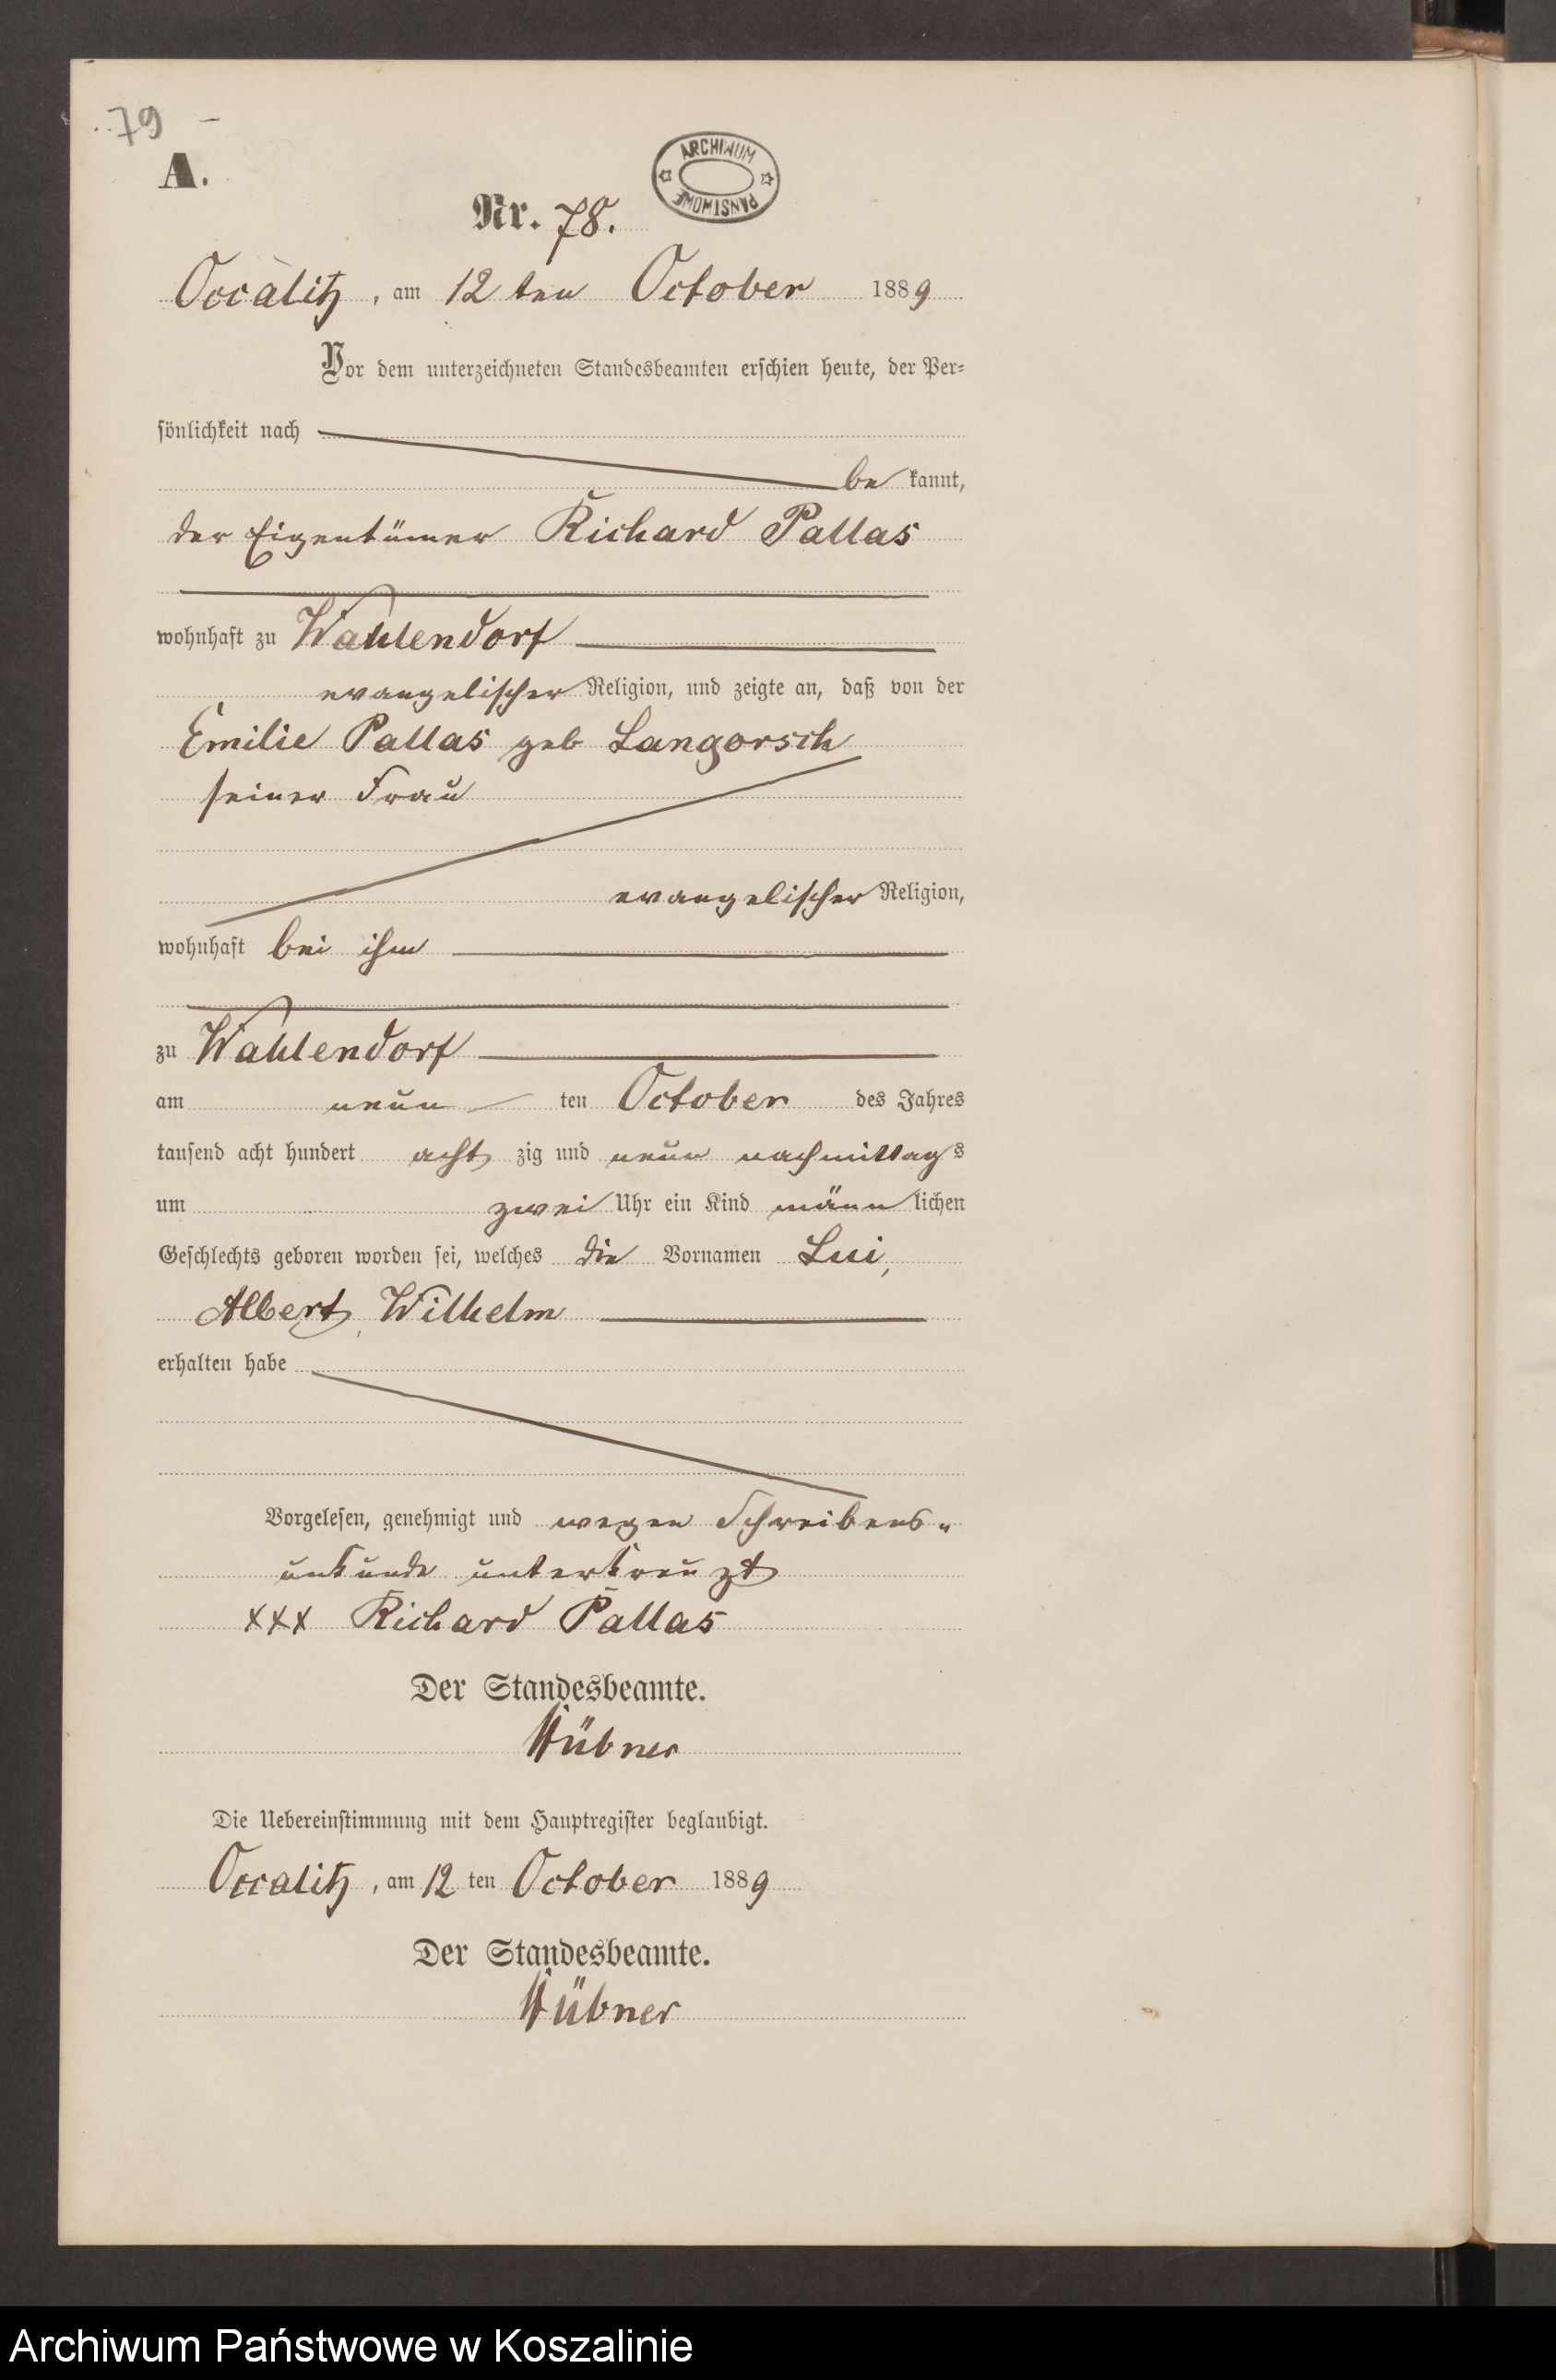 79 –
A.
ARCHIWUM PAŃSTWOWE
Nr. 78.
Occalitz, am 12 ten October 1889
Vor dem unterzeichneten Standesbeamten erschien heute, der Per=
sönlichkeit nach
be kannt,
der Eigentümer Richard Pallas
wohnhaft zu Wahlendorf
evangelischer Religion, und zeigte an, daß von der
Emilie Pallas geb Langorsch
seiner Frau
evangelischer Religion,
wohnhaft bei ihm
zu Wahlendorf
am neun ten October des Jahres
tausend acht hundert acht zig und neun nachmittags
um zwei Uhr ein Kind männ lichen
Geschlechts geboren worden sei, welches die Vornamen Lui,
Albert, Wilhelm
erhalten habe
Vorgelesen, genehmigt und wegen Schreibens=
unkunde unterkreuzt
xxx Richard Pallas
Der Standesbeamte.
Hübner
Die Uebereinstimmung mit dem Hauptregister beglaubigt.
Occalitz, am 12 ten October 1889
Der Standesbeamte.
Hübner
Archiwum Państwowe w Koszalinie